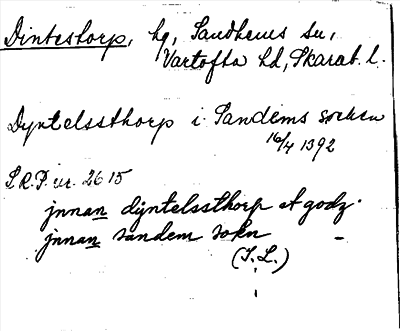 Dintestorp, hg, Sandhems sn,
Vartofta hd, Skarab. l.
Dyntelssthorp i Sandems socken
16/4 1392
S.R.P. nr. 2615
jnnan dyntelssthorp et godz.
jnnan sandem sokn -
(I.L.)